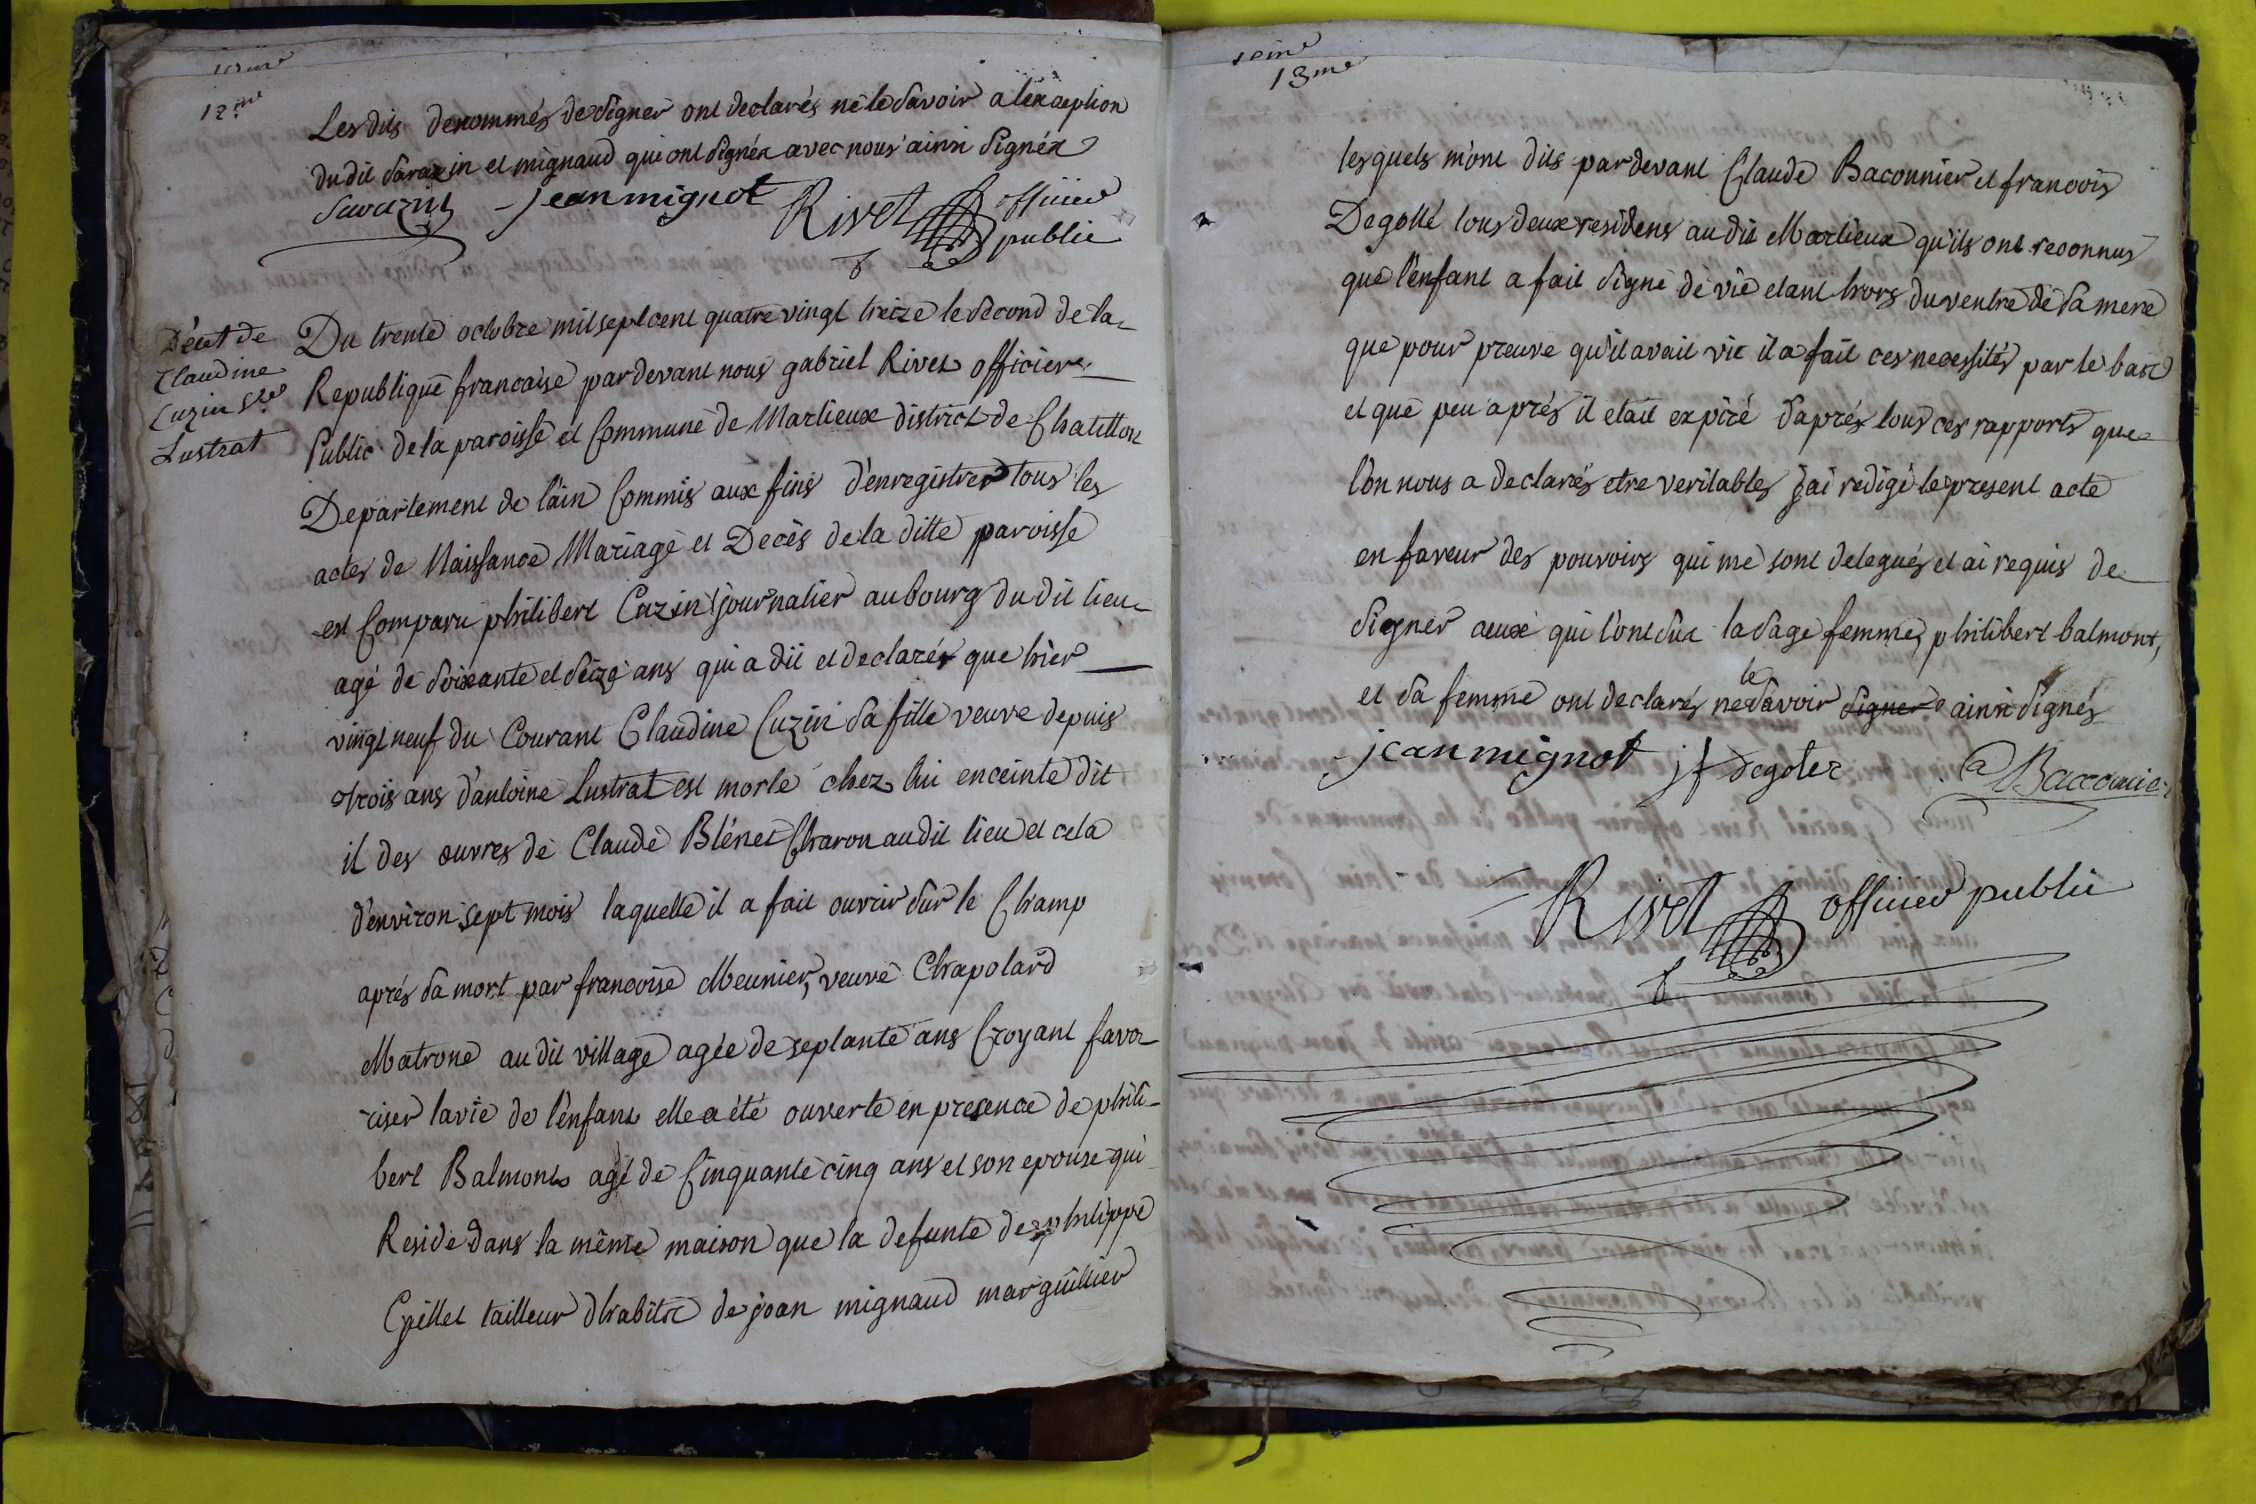 12.me
Les dits denommés de signer ont declarés ne le savoir a lexception
du dit sarazin et mignaud qui ont signéz avec nous ainsi signéz
Sarazin jean mignot Rivet officier
public
Décet de
Claudine
Cuzin
Lustrat
Du trente octobre mil sept cent quatre vingt treize le second de la
Republique francaise pardevant nous gabriel Rivet officier
Public de la paroisse et Commune de Marlieux district de Chatillon
Departement de l'ain Commis aux fins d'enregistrer tous les
actes de Naissance Mariage et Decès de la ditte paroisse
est Comparu philibert Cuzin journalier au bourg du dit lieu
agé de soixante et seize ans qui a dit et declaréz que hier
vingt neuf du Courant Claudine Cuzin sa fille veuve depuis
trois ans d'antoine Lustrat est morte chez lui enceinte dit
il des ouvres de Claude Blénet Charon au dit lieu et cela
d'environ sept mois laquelle il a fait ouvrir sur le Champ
aprés sa mort par francoise Meunier, veuve Chapolard
Matrone au dit village agée de septante ans Croyant favo-
riser la vie de l'enfant elle a été ouverte en presence de phili-
bert Balmont agé de Cinquante cinq ans et son epouse qui
Reside dans la même maison que la defunte de philippe
Gillet tailleur dhabits de jean mignaud marguillier
13me
lesquels m'ont dits pardevant Claude Baconnier et francois
Degollé tous deux residens au dit Marlieux qu'ils ont reconnus
que l'enfant a fait signe de vie etant hors du ventre de sa mere
que pour preuve qu'il avait vie il a fait ces necessités par le bas
et que peu aprés il etait expiré d'aprés tous ces rapports que
l'on nous a declarés etre veritables j'ai redigé le present acte
en faveur des pouvoirs qui me sont delegués et ai requis de
signer ceux qui l'ont sû la sage femme, philibert balmont,
et sa femme ont declarés ne le savoir signer ainsi signés
jean mignot jf degoter Bacconier
Rivet officier public